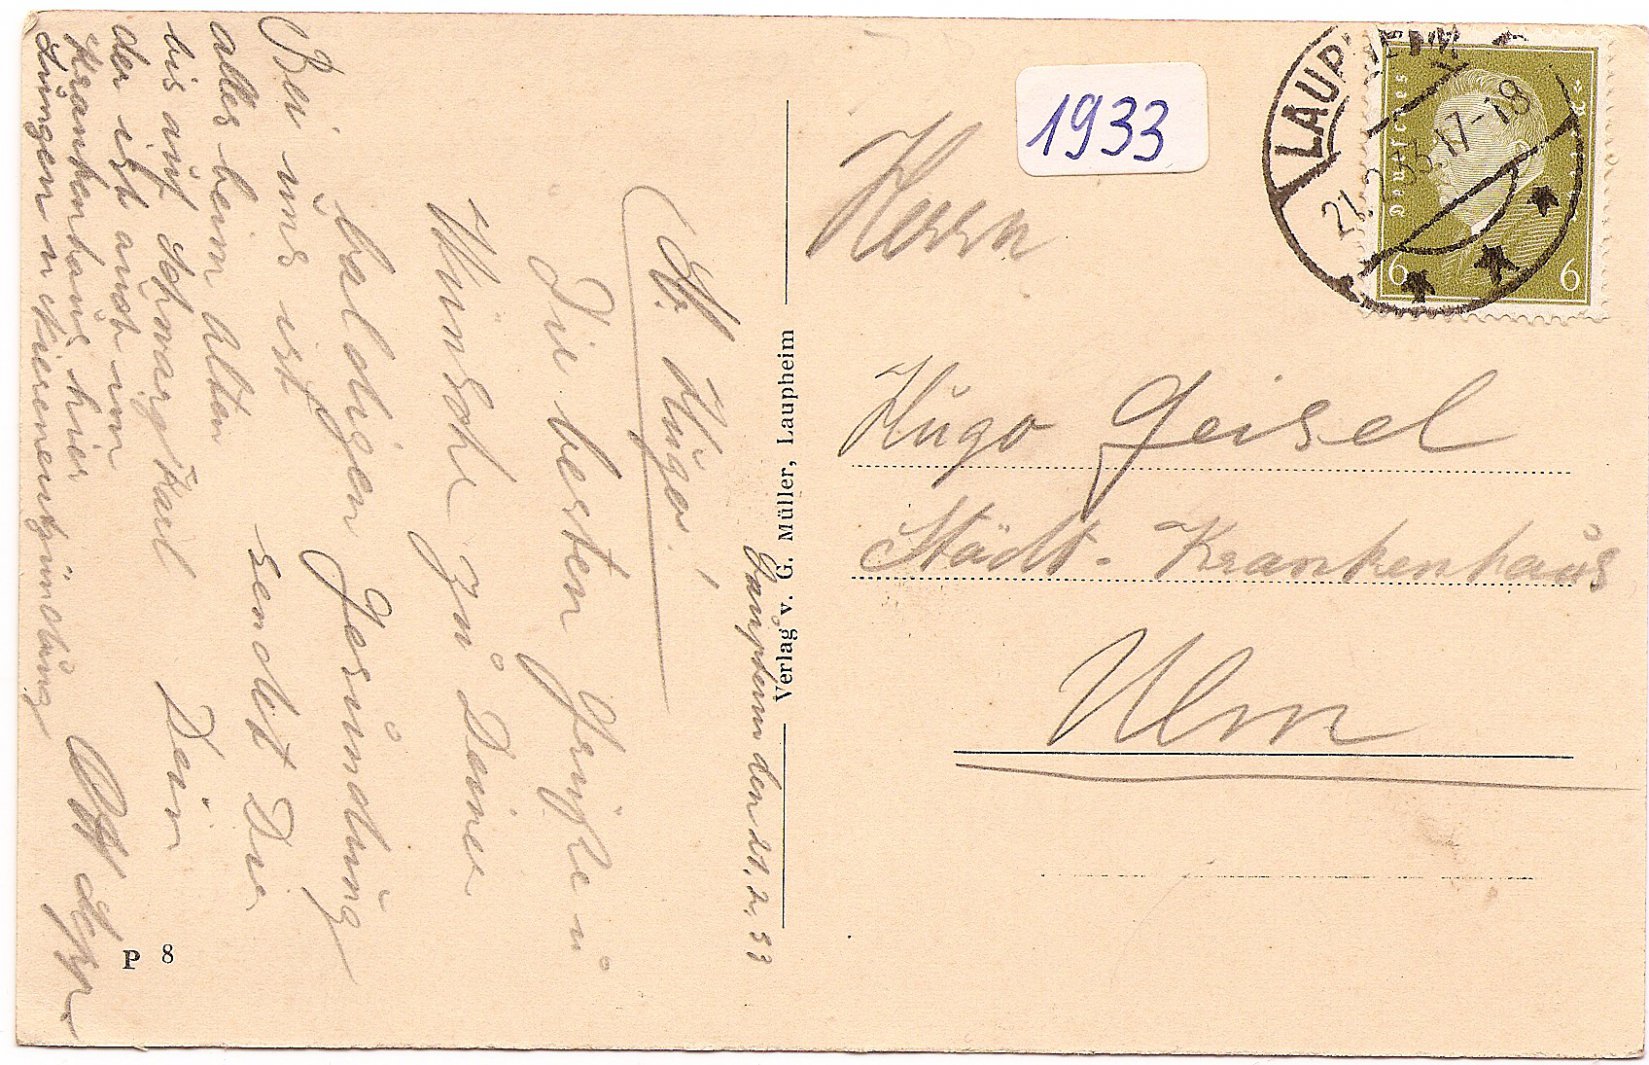 1933
LAUPHEIM
21.2.33.17-18
Deutsches Reich
6 6
Herrn
Hugo Geisel
Städt. Krankenhaus
Ulm
Verlag v. G. Müller, Laupheim
P 8
Laupheim den 21.2.33
Lb. Hugo!
Die besten Grüße u
Wünsche zu Deiner
baldigen Gesundung
sendet Dir
Dein
Bei uns ist
alles beim Alten
bis auf Schwarz Karl
der ist auch im
Krankenhaus hier
Lungen u Nierenentzündung